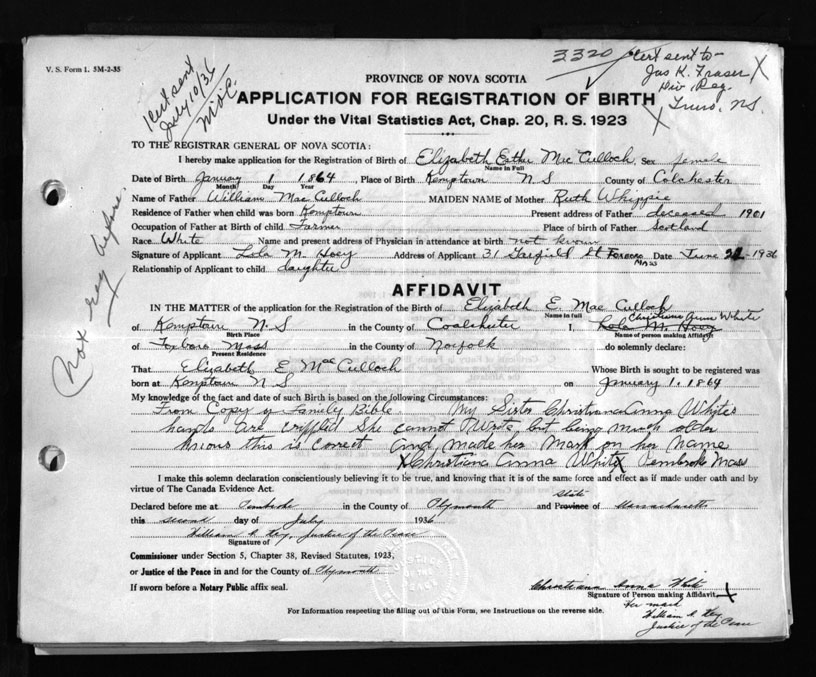 V. S. Form 1. 5M-2-35
Cert sent
July 10/36
M.O.C.
3320
Cert sent to
Jas K. Fraser X
Div Reg.
Truro, N.S.
X
PROVINCE OF NOVA SCOTIA
APPLICATION FOR REGISTRATION OF BIRTH
Under the Vital Statistics Act, Chap. 20, R. S. 1923
TO THE REGISTRAR GENERAL OF NOVA SCOTIA:
I hereby make application for the Registration of Birth of Elizabeth Esther MacCulloch Sex female
Name in Full
Date of Birth January 1 1864 Place of Birth Kemptown N S County of Colchester
Month Day Year
Name of Father William MacCulloch MAIDEN NAME of Mother Ruth Whippie
Residence of Father when child was born Kemptown Present address of Father deceased 1901
Occupation of Father at Birth of child Farmer Place of birth of Father Scotland
Race White Name and present address of Physician in attendance at birth not known
Signature of Applicant Lola M. Hoey Address of Applicant 31 Garfield St Foxboro Mass Date June 22-1936
Relationship of Applicant to child daughter
Not reg before.
AFFIDAVIT
IN THE MATTER of the application for Registration of the Birth of Elizabeth E. MacCulloch
Name in Full
Christiana Anna White
of Kemptown N. S in the County of Coalchester I, Lola M. Hoey
Birth Place Name of person making Affidavit
of Foxboro Mass in the County of Norfolk do solemnly declare:
Present Residence
That Elizabeth E MacCulloch Whose Birth is sought to be registered was
born at Kemptown N S on January 1. 1864
My knowledge of the fact and date of such Birth is based on the following Circumstances:
From Copy of Family Bible. My Sister Christiana Anna White's
hands are crippled She cannot Write, but being much older
knows this is correct and made her mark on her name
X Christiana Anna White X Pembroke Mass
I make this solemn declaration conscientiously believing it to be true, and knowing that it is of the same force and effect as if made under oath and by
virtue of The Canada Evidence Act.
State
Declared before me at Pembroke in the County of Plymouth and Province of Massachusetts
this second day of July 1936
William C Key, Justice of the Peace
Signature of
Commissioner under Section 5, Chapter 38, Revised Statutes, 1923,
or Justice of the Peace in and for the County of Plymouth
If sworn before a Notary Public affix seal.
Christiana Anna White
Signature of Person making Affidavit. X
Her mark
William C Key
Justice of the Peace
For Information respecting the filling out of this Form, see Instructions on the reverse side.